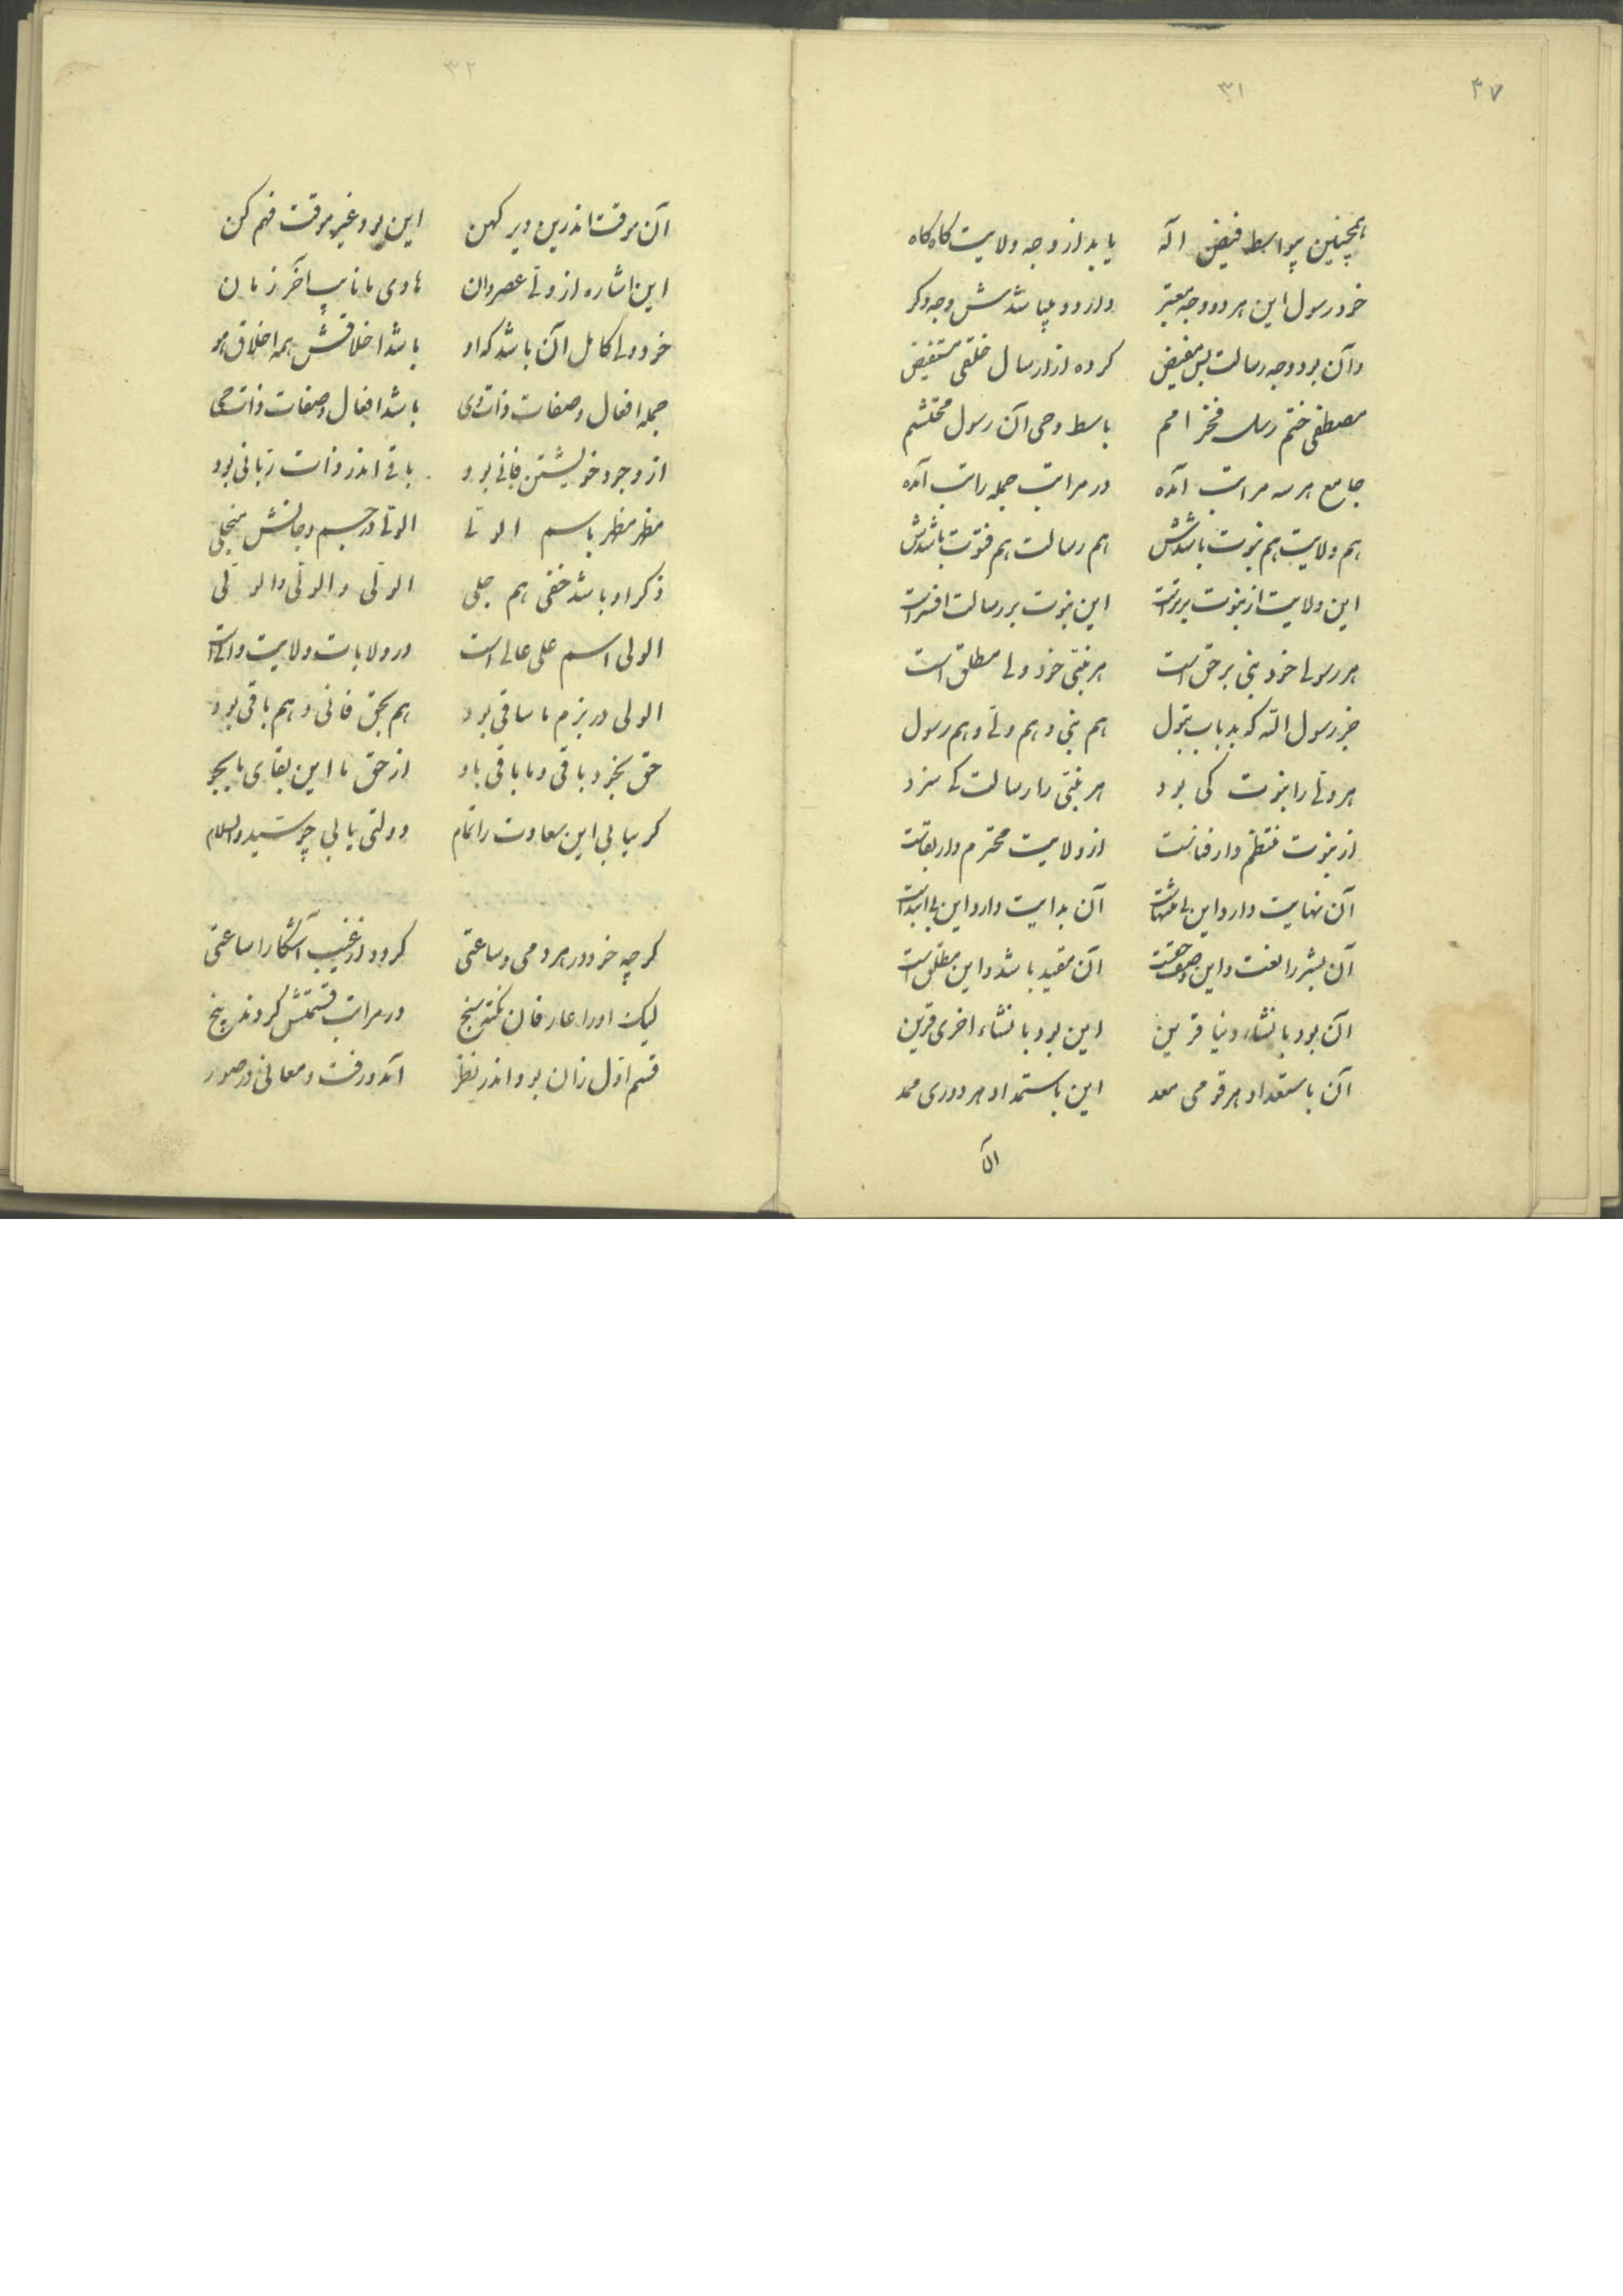 ۴۷
۳۱
همچنین بیواسطه فیض اله یابد از وجه ولایت گاه گاه
خود رسول این هر دو وجه معتبر دارد و میباشدش وجه دگر
وآن بود وجه رسالت بس مفیض کرده از ارسال خلقی مستفیض
مصطفی ختم رسل فخر امم باسط وحی آن رسول محتشم
جامع هر سه مراتب آمده در مراتب جمله راتب آمده
هم ولایت هم نبوت باشدش هم رسالت هم فتوت باشدش
این ولایت از نبوت برتراست این نبوت بر رسالت افسراست
هر رسولی خود نبی بر حق است هر نبی خود ولی مطلق است
جز رسول الله که بد باب بتول هم نبی و هم ولی و هم رسول
هر ولی را نبوت کی بود هر نبی را رسالت کی سزد
از نبوت منتظم دار فناست از ولایت محترم دار بقاست
آن نهایت دارد این بی منتهاست آن بدایت دارد این بی ابتداست
آن بشر را نعت و این وصف حقست آن مقید باشد و این مطلق است
آن بود با نشاء دنیا قرین این بود با نشاء اخری قرین
آن باستعداد هر قومی معد این باستمداد هر دوری ممد
آن
۳۲
آن موقت اندرین دیر کهن این بود غیر موقت فهم کن
این اشاره از ولی عصر دان هادی ما نایب آخر زمان
خود ولی کامل آن باشد که او باشد اخلاقش همه اخلاق هو
جمله افعال و صفات و ذات وی باشد افعال و صفات و ذات حی
از وجود خویشتن فانی بود باقی اندر ذات ربانی بود
مظهر مظهر باسم الولی الولی در جسم و جانش منجلی
ذکر او باشد خفی هم جلی الولی و الولی و الولی
الولی اسم علی عالی است در ولایات ولایت والی است
الولی در بزم ما ساقی بود هم بحق فانی و هم باقی بود
حق بخود باقی و ما باقی باو از حق ما این بقای ما بجو
گر بیابی این سعادت را تمام دولتی یابی چو سید والسلام
گرچه خود در هر دمی و ساعتی گردد از غیب آشکارا ساعتی
لیک او را عارفان نکته سنج در مراتب قسمتش کردند پنج
قسم اول زان بود اندر نظر آمد و رفت معانی در صور